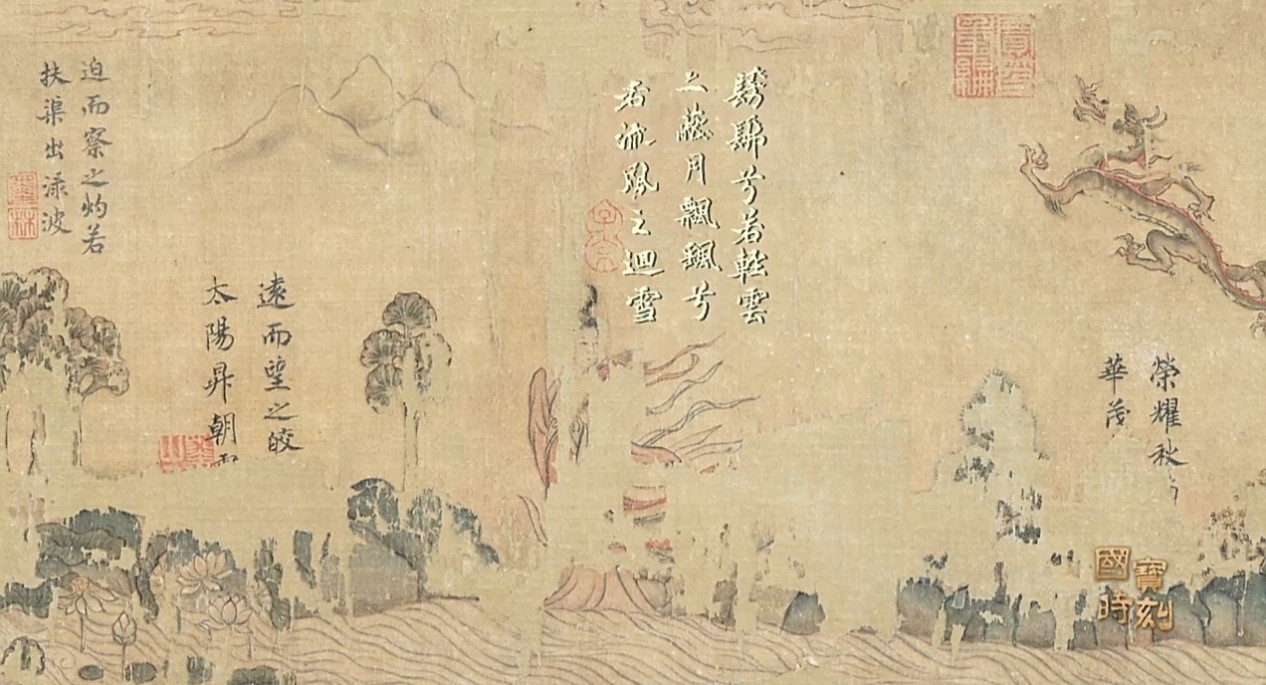 榮耀秋
華茂
髣髴兮若輕雲
之蔽月飄飖兮
若流風之迴雪
遠而望之皎
太陽昇朝
迫而察之灼若
扶渠出渌波
國寶
時刻